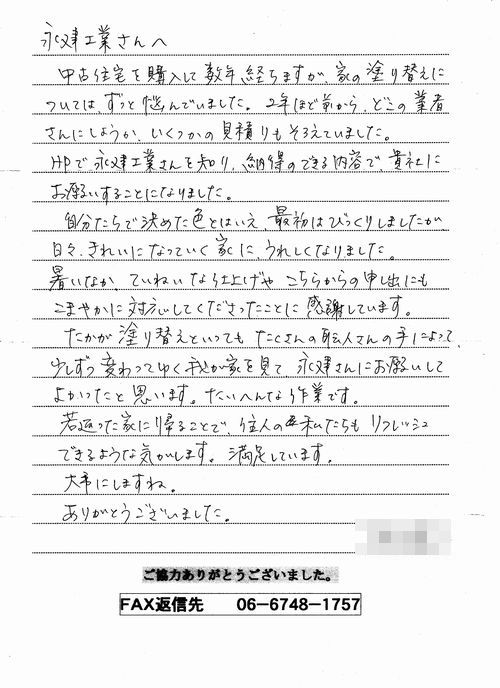 永建工業さんへ
中古住宅を購入して数年経ちますが、家の塗り替えに
ついては、ずっと悩んでいました。2年ほど前から、どこの業者
さんにしようか、いくつかの見積りもそろえていました。
HPで永建工業さんを知り、納得のできる内容で、貴社に
お願いすることになりました。
自分たちで決めた色とはいえ、最初はびっくりしましたが、
日々、きれいになっていく家に、うれしくなりました。
暑いなか、ていねいな仕上げや こちらからの申し出にも
こまやかに対応してくださったことに感謝しています。
たかが塗り替えといっても たくさんの職人さんの手によって、
少しずつ変わってゆく我が家を見て、永建さんにお願いして
よかったと思います。たいへんな作業です。
若返った家に帰ることで、住人の私たちも リフレッシュ
できるような気がします。満足しています。
大事にしますね。
ありがとうございました。
ご協力ありがとうございました。
FAX返信先 06-6748-1757